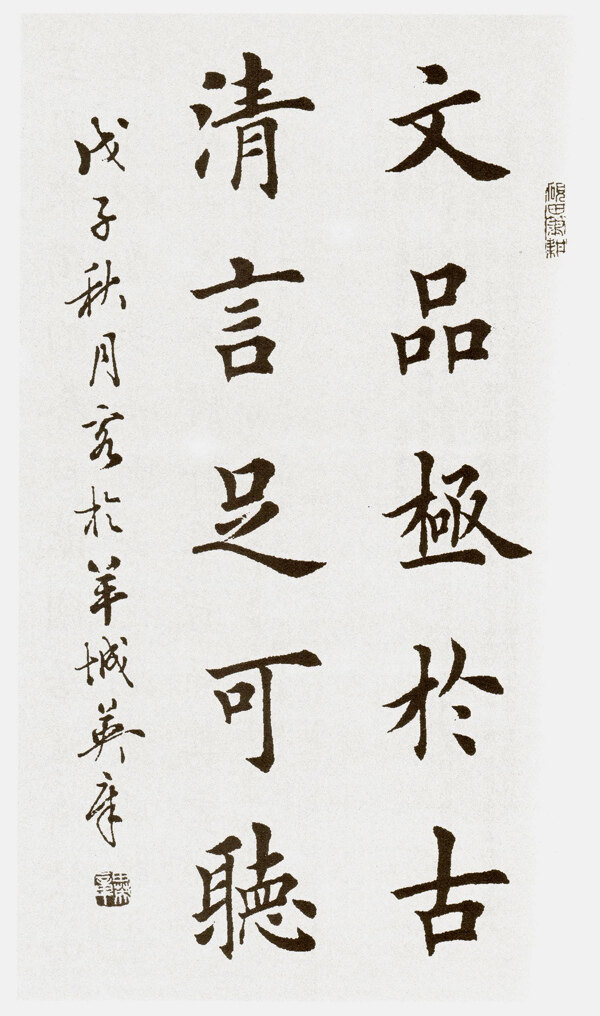 文品極於古
清言足可聽
戊子秋月客於羊城英章